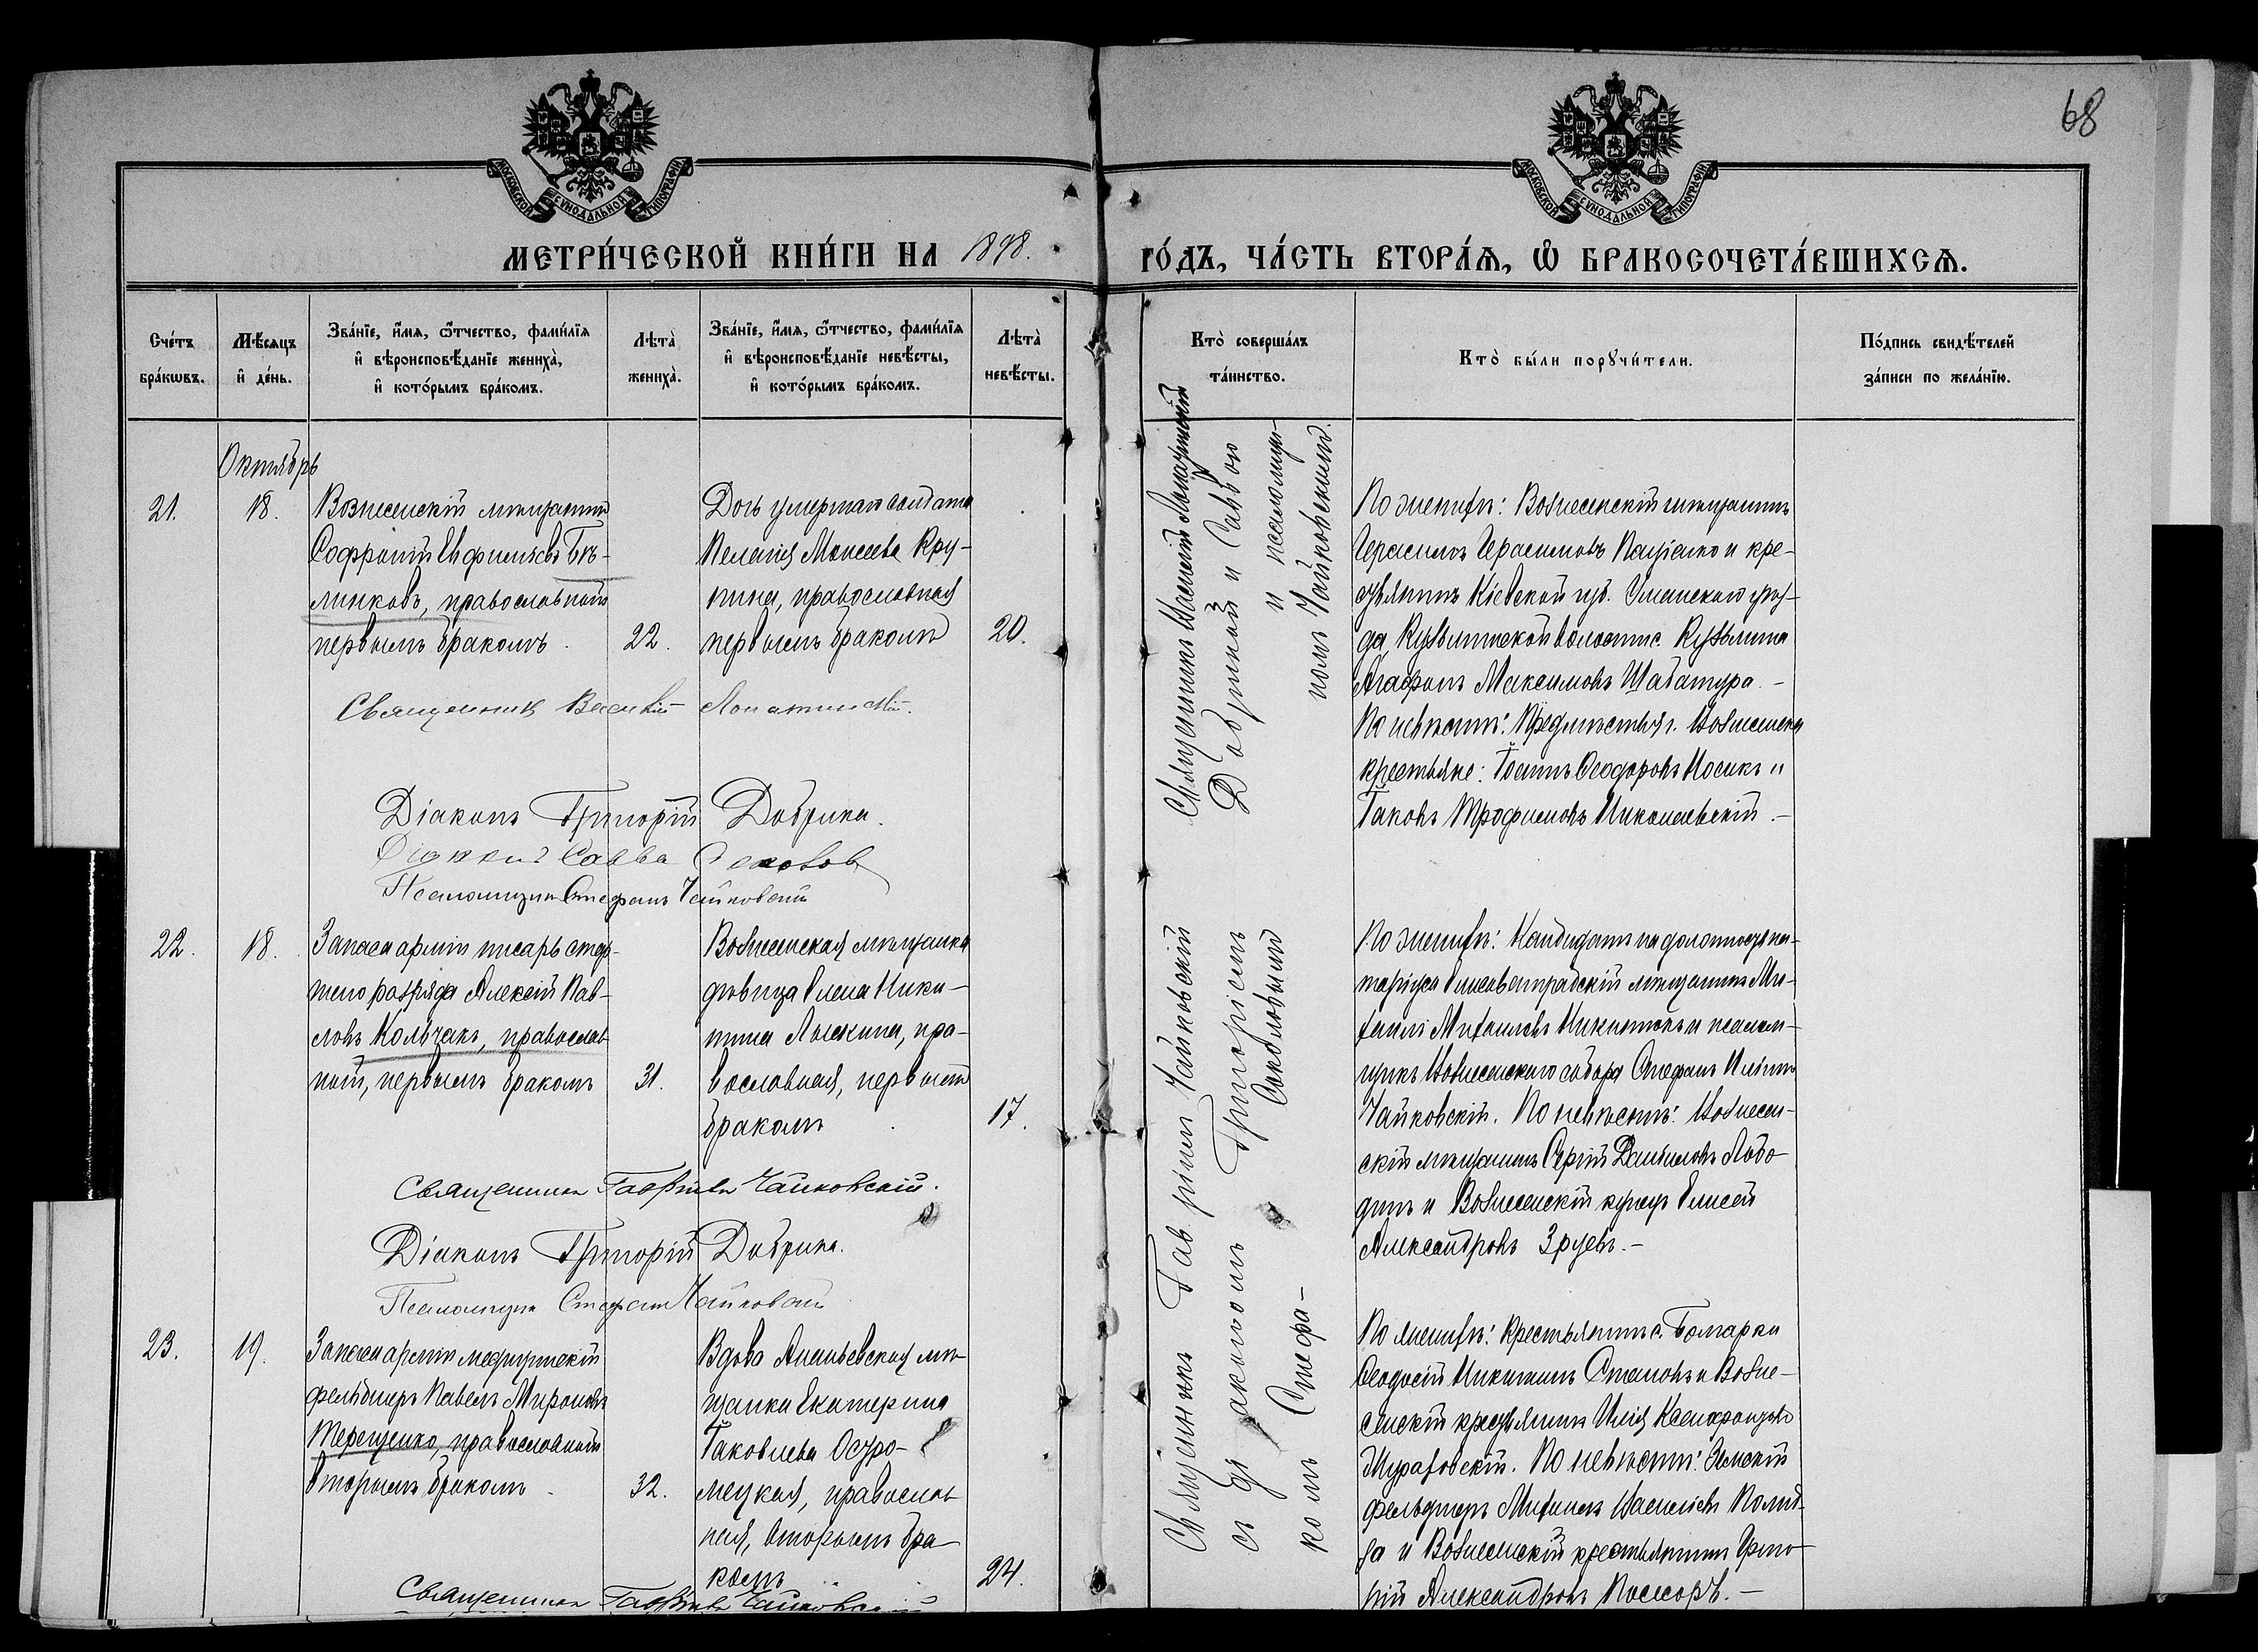 68
МОСКОВСКОЙ СУНОДАЛЬНОЙ ТИПОГРАФІИ
МОСКОВСКОЙ СУНОДАЛЬНОЙ ТИПОГРАФІИ
МЕТРИ́ЧЕСКОЙ КНИ́ГИ НА 1898. ГО́ДЪ, ЧА́СТЬ ВТОРА́Ѧ, Ѡ҆ БРАКОСОЧЕТА́ВШИХСѦ.
Сче́тъ бра́кѡвъ.
Мѣ́сяцъ и҆ де́нь.
Зва́нїе, и҆́мя, ѻ҆́тчество, фами́лїя
и҆ вѣроисповѣ́данїе жениха̀,
и҆ кото́рымъ бра́комъ.
Лѣта̀ жениха̀.
Зва́нїе, и҆́мя, ѻ҆́тчество, фами́лїя
и҆ вѣроисповѣ́данїе невѣ́сты,
и҆ кото́рымъ бра́комъ.
Лѣта̀ невѣ́сты.
Кто̀ соверша́лъ та́инство.
Кто̀ бы́ли порꙋчи́тели.
По́дпись свидѣ́телей за́писи по жела́нїю.
Октябрь
21.
18.
Вознесенскій мѣщанинъ
Софроній Евфиміевъ Бѣ-
линковъ, православный
первымъ бракомъ.
22.
Дочь умершаго солдата
Пелагія Моисеева Кру-
пина, православная
первымъ бракомъ
20.
Священникъ Василій Лопатинскій
Добрикой и Саввою
и псаломщи-
комъ Чайковскимъ.
По женихѣ: Вознесенскій мѣщанинъ
Герасимъ Герасимовъ Пащенко и кре-
стьянинъ Кіевской губ. Уманскаго уѣз-
да, волости с.
Агафонъ Максимовъ Шабатура.-
По невѣстѣ: Предмѣстья г. Вознесенска
крестьяне: Іоаннъ Ѳеодоровъ Носикъ и
Іаковъ Трофимовъ Николаевскій.-
Священникъ Василій Лопатинскій.
Діаконъ Григорій Добрика.
Діаконъ Савва
Псаломщикъ Стефанъ Чайковскій
22.
18.
Запаса арміи писарь стар-
шаго разряда Алексій Пав-
ловъ Кольчакъ, православ-
ный, первымъ бракомъ
31.
Вознесенская мѣщанка
дѣвица Елена Ники-
тина Лыскина, пра-
вославная, первымъ
бракомъ
17.
Священникъ Гавріилъ Чайковскій
съ діакономъ Григоріемъ
комъ Стефа-
По женихѣ: Кандидатъ на должность но-
таріуса Елисаветградскій мѣщанинъ Ми-
хаилъ Михаиловъ и псалом-
щикъ Вознесенскаго собора Стефанъ Иліинъ
Чайковскій. По невѣстѣ: Вознесен-
скій мѣщанинъ Сергій Даниловъ Лобо-
динъ и Вознесенскій купецъ Елисей
Александровъ Зруевъ.-
Священникъ Гавріилъ Чайковскій.
Діаконъ Григорій Добрика.
Псаломщикъ Стефанъ Чайковскій
23.
19.
Запаса арміи медицинскій
фельдшеръ Павелъ Мироновъ
Терещенко, православный
вторымъ бракомъ.
32.
Вдова Ананьевская мѣ-
щанка Екатерина
Іаковлева
православ-
ная, вторымъ бра-
комъ
24.
По женихѣ: Крестьянинъ с. Болгарки
Ѳеодосій Никитинъ Стамовъ и Возне-
сенскій крестьянинъ Илія
По невѣстѣ: Земскій
фельдшеръ Михаилъ Васильевъ
и Вознесенскій крестьянинъ Григо-
рій Александровъ
Священникъ Гавріилъ Чайковскій